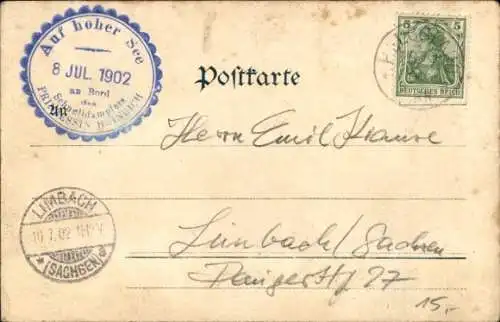 Auf hoher See
8 JUL. 1902
an Bord
des
Schnelldampfers
PRINZESSIN HEINRICH
An
Postkarte
5 5
DEUTSCHES REICH
Herrn Emil Krause
LIMBACH
10.7.02
(SACHSEN)
Limbach/Sachsen
27
15,-